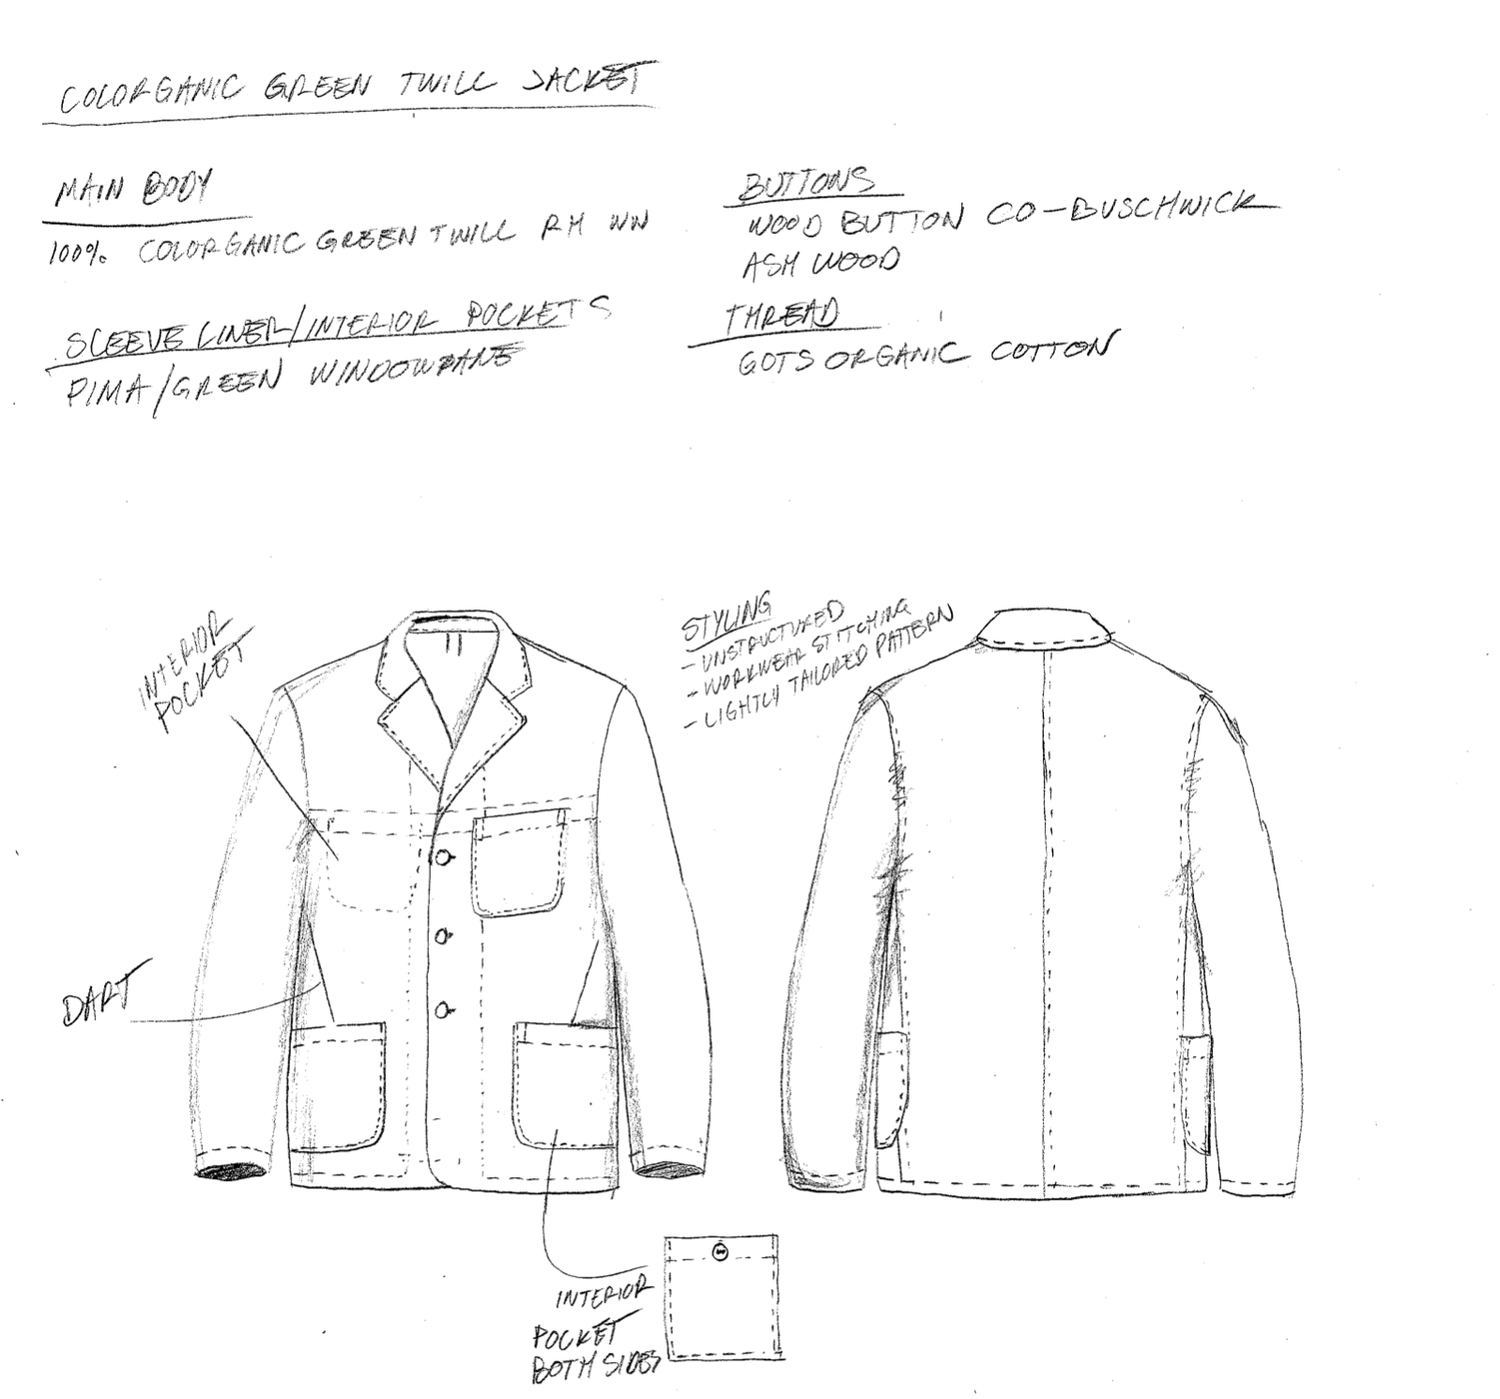 COLORGANIC GREEN TWILL JACKET
MAIN BODY
100% COLORGANIC GREEN TWILL RH WW
SLEEVE LINER/INTERIOR POCKETS
PIMA/GREEN WINDOWPANE
BUTTONS
WOOD BUTTON CO-BUSCHWICK
ASH WOOD
THREAD
GOTS ORGANIC COTTON
INTERIOR
POCKET
STYLING
- UNSTRUCTURED
- WORKWEAR STITCHING
- LIGHTLY TAILORED PATTERN
DART
INTERIOR
POCKET
BOTH SIDES